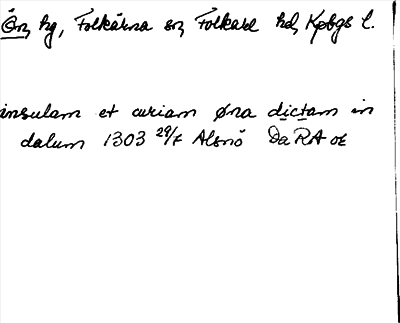 Ön, hg, Folkärna sn, Folkare hd, Kpbgs l.
insulam et curiam øna dictam in
dalum 1303 29/7 Alsnö DaRA or